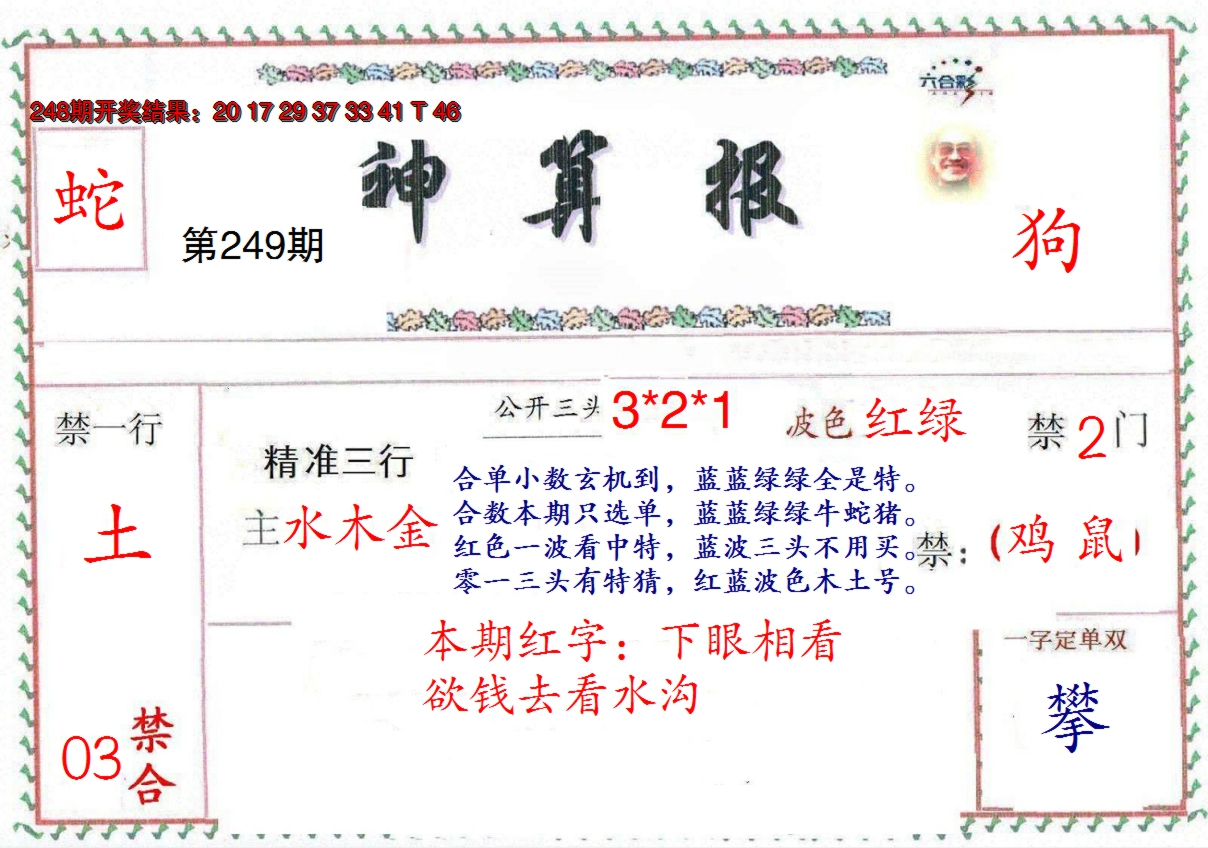 六合彩
248期开奖结果：20 17 29 37 33 41 T 46
神算报
蛇
第249期
狗
公开三头 3*2*1
波色 红绿
禁一行
禁2门
精准三行
主水木金
合单小数玄机到，蓝蓝绿绿全是特。
合数本期只选单，蓝蓝绿绿牛蛇猪。
红色一波看中特，蓝波三头不用买。
零一三头有特猜，红蓝波色木土号。
土
禁：（鸡 鼠）
本期红字：下眼相看
欲钱去看水沟
一字定单双
攀
03禁合